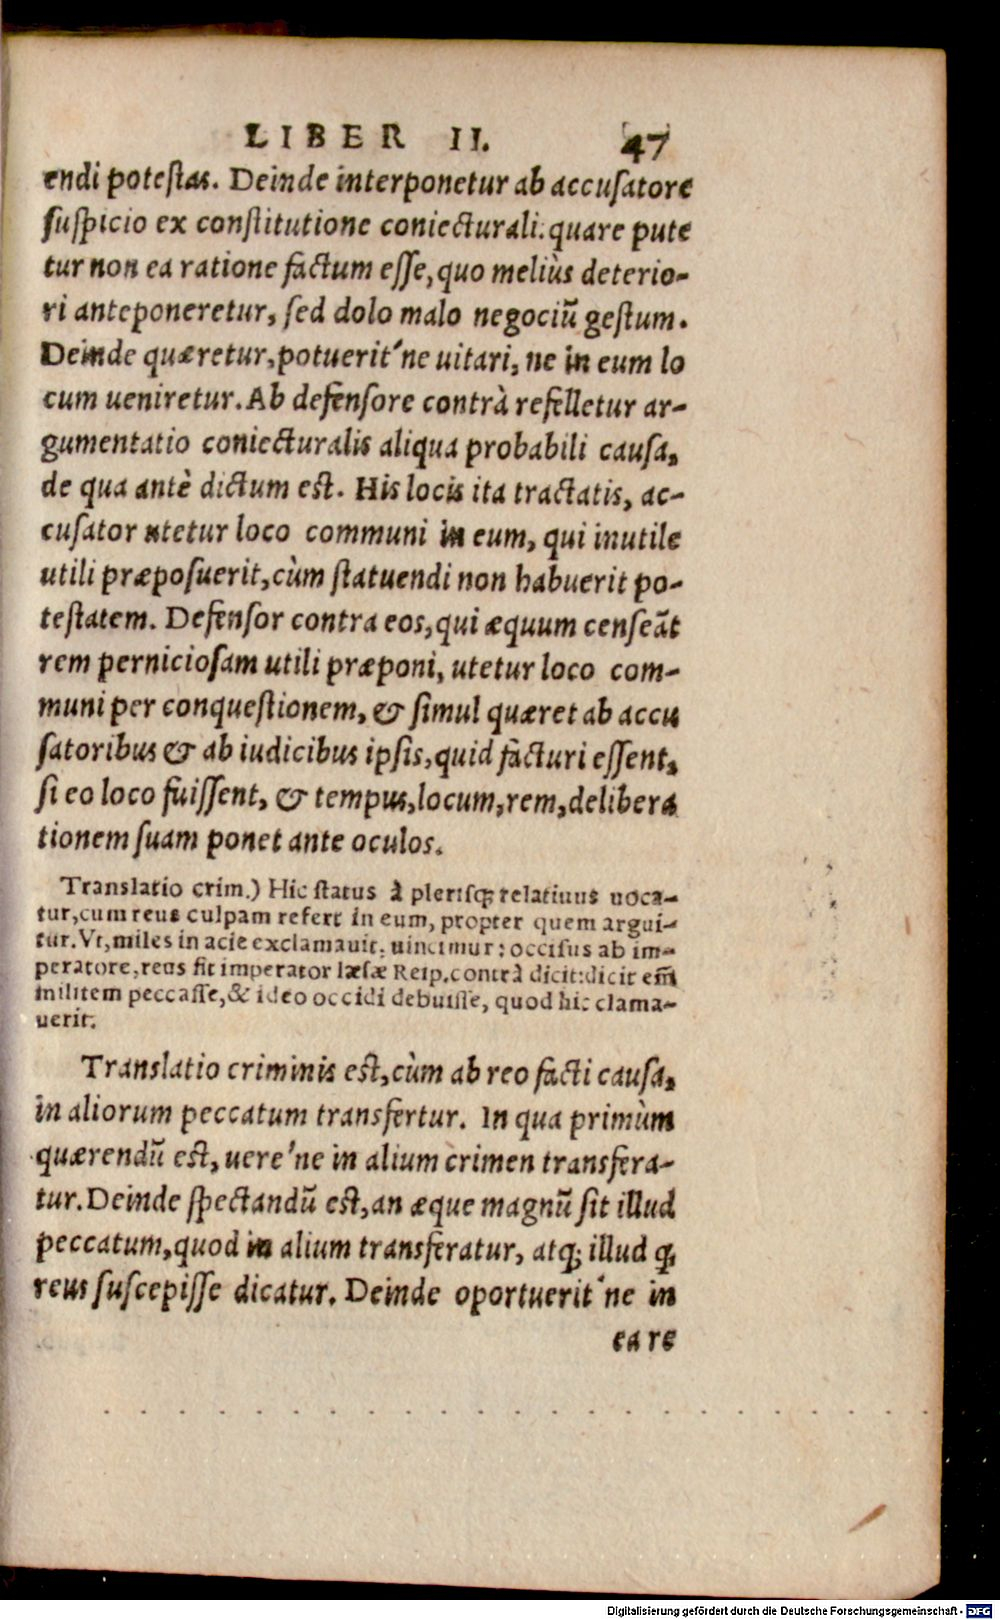 LIBER II. 47
endi potestas. Deinde interponetur ab accusatore
suspicio ex constitutione coniecturali. quare pute
tur non ea ratione factum esse, quo meliùs deterio-
ri anteponeretur, sed dolo malo negociũ gestum.
Deinde quæretur, potuerit'ne uitari, ne in eum lo
cum ueniretur. Ab defensore contrà refelletur ar-
gumentatio coniecturalis aliqua probabili causa,
de qua antè dictum est. His locis ita tractatis, ac-
cusator utetur loco communi in eum, qui inutile
utili præposuerit, cùm statuendi non habuerit po-
testatem. Defensor contra eos, qui æquum censeãt
rem perniciosam utili præponi, utetur loco com-
muni per conquestionem, & simul quæret ab accu
satoribus & ab iudicibus ipsis, quid facturi essent,
si eo loco fuissent, & tempus, locum, rem, delibera
tionem suam ponet ante oculos.
Translatio crim.) Hic status à plerisq; relatiuus uoca-
tur, cum reus culpam refert in eum, propter quem argui-
tur. Vt, miles in acie exclamauit, uincimur: occisus ab im-
peratore, reus fit imperator læsæ Reip. contrà dicit: dicit em̃
militem peccasse, & ideo occidi debuisse, quod hic clama-
uerit.
Translatio criminis est, cùm ab reo facti causa,
in aliorum peccatum transfertur. In qua primùm
quærendũ est, uere'ne in alium crimen transfera-
tur. Deinde spectandũ est, an æque magnũ sit illud
peccatum, quod in alium transferatur, atq; illud q̃
reus suscepisse dicatur. Deinde oportuerit'ne in
ea re
Digitalisierung gefördert durch die Deutsche Forschungsgemeinschaft - DFG